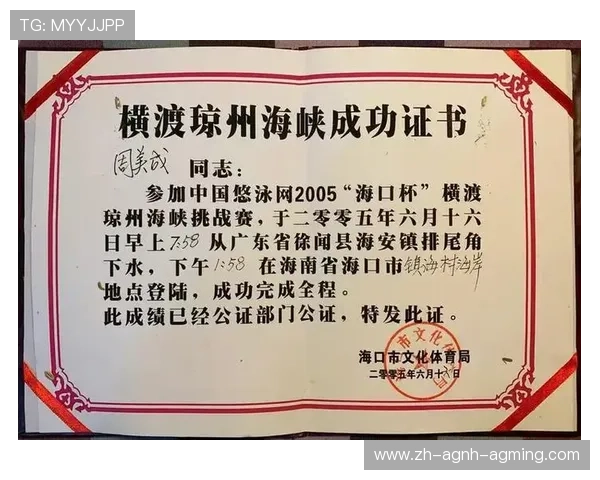 TG: MYYJJPP
横渡琼州海峡成功证书
周美成 同志：
参加中国悠泳网2005“海口杯”横渡
琼州海峡挑战赛，于二零零五年六月十六
日早上 7:58 从广东省徐闻县海安镇排尾角
下水，下午 1:58 在海南省海口市 镇海村海岸
地点登陆，成功完全程。
此成绩已经公证部门公证，特发此证。
海口市文化体育局
二零零五年六月十 日
www.zh-agnh-agming.com